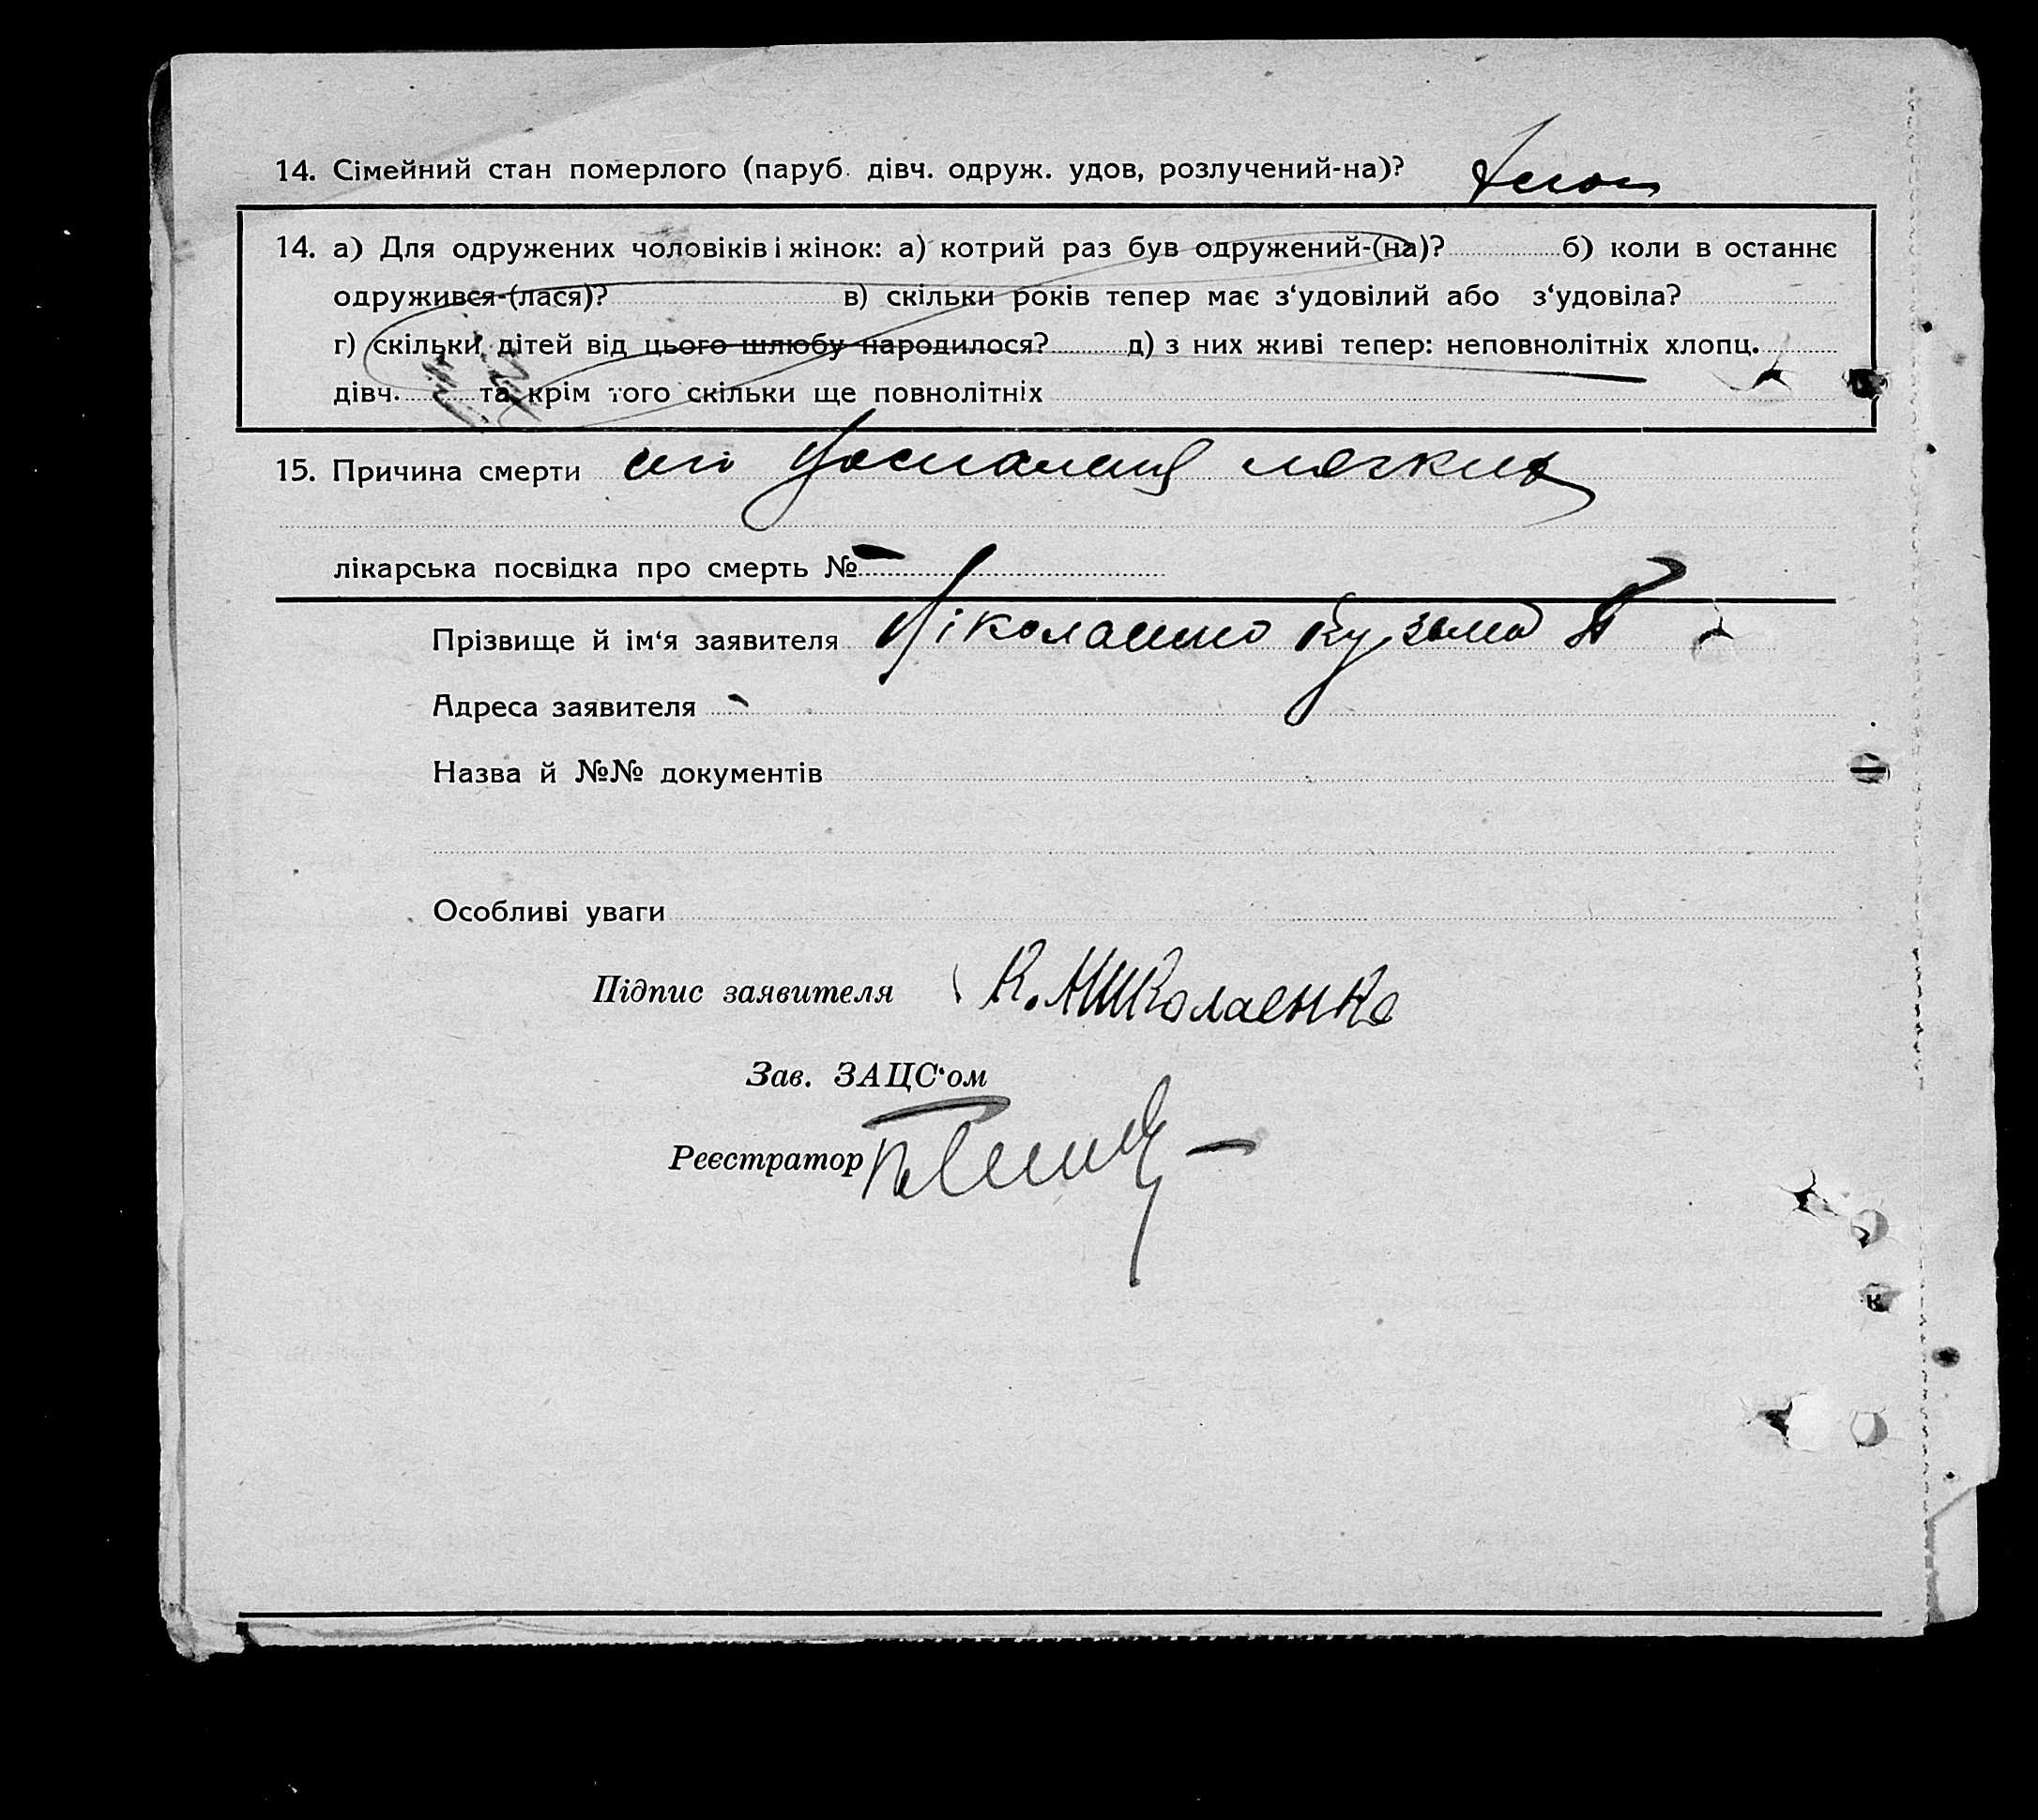 14. Сімейний стан померлого (паруб. дівч. одруж. удов, розлучений-на)?
14. а) Для одружених чоловіків і жінок: а) котрий раз був одружений-(на)? б) коли в останнє
одружився-(лася)? в) скільки років тепер має з‘удовілий або з‘удовіла?
г) скільки дітей від цього шлюбу народилося? д) з них живі тепер: неповнолітніх хлопц.
дівч. та крім того скільки ще повнолітніх
15. Причина смерти
лікарська посвідка про смерть № -
Прізвище й ім‘я заявителя Кузьма
Адреса заявителя -
Назва й №№ документів
Особливі уваги
Підпис заявителя К. Миколаенко
Зав. ЗАЦС‘ом
Реєстратор